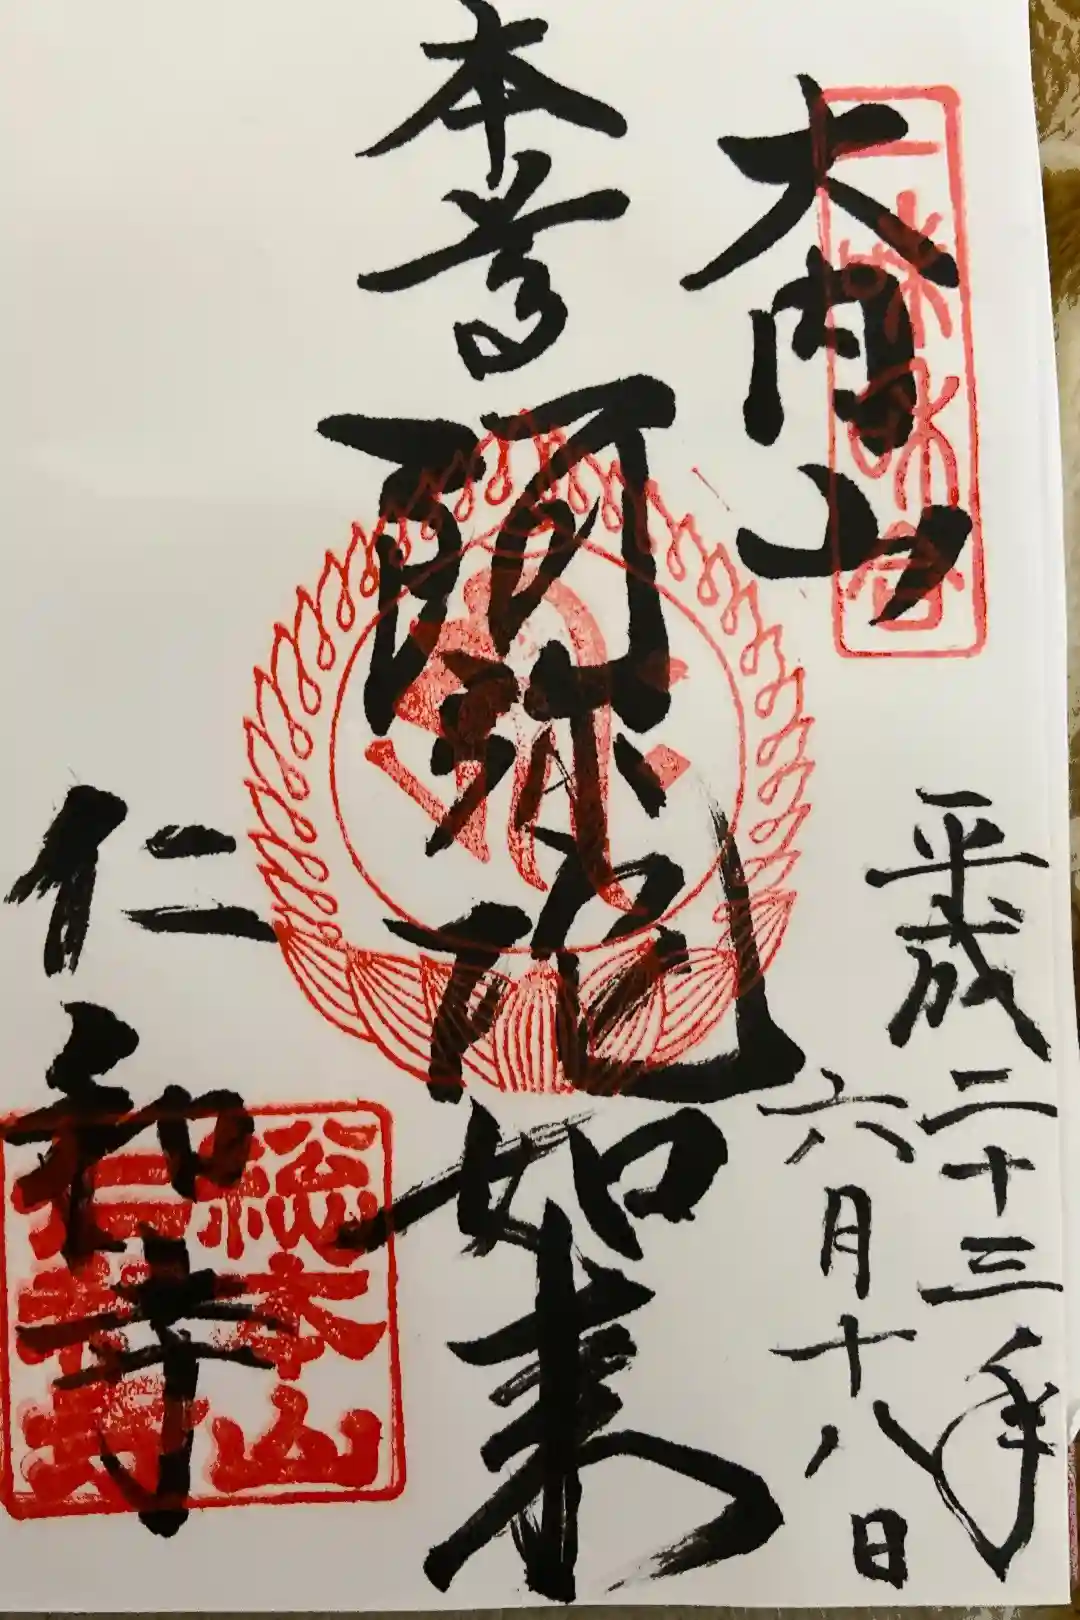 大内山
平成二十三年
六月十八日
本尊
阿弥陀如来
仁和寺
総本山
仁和寺